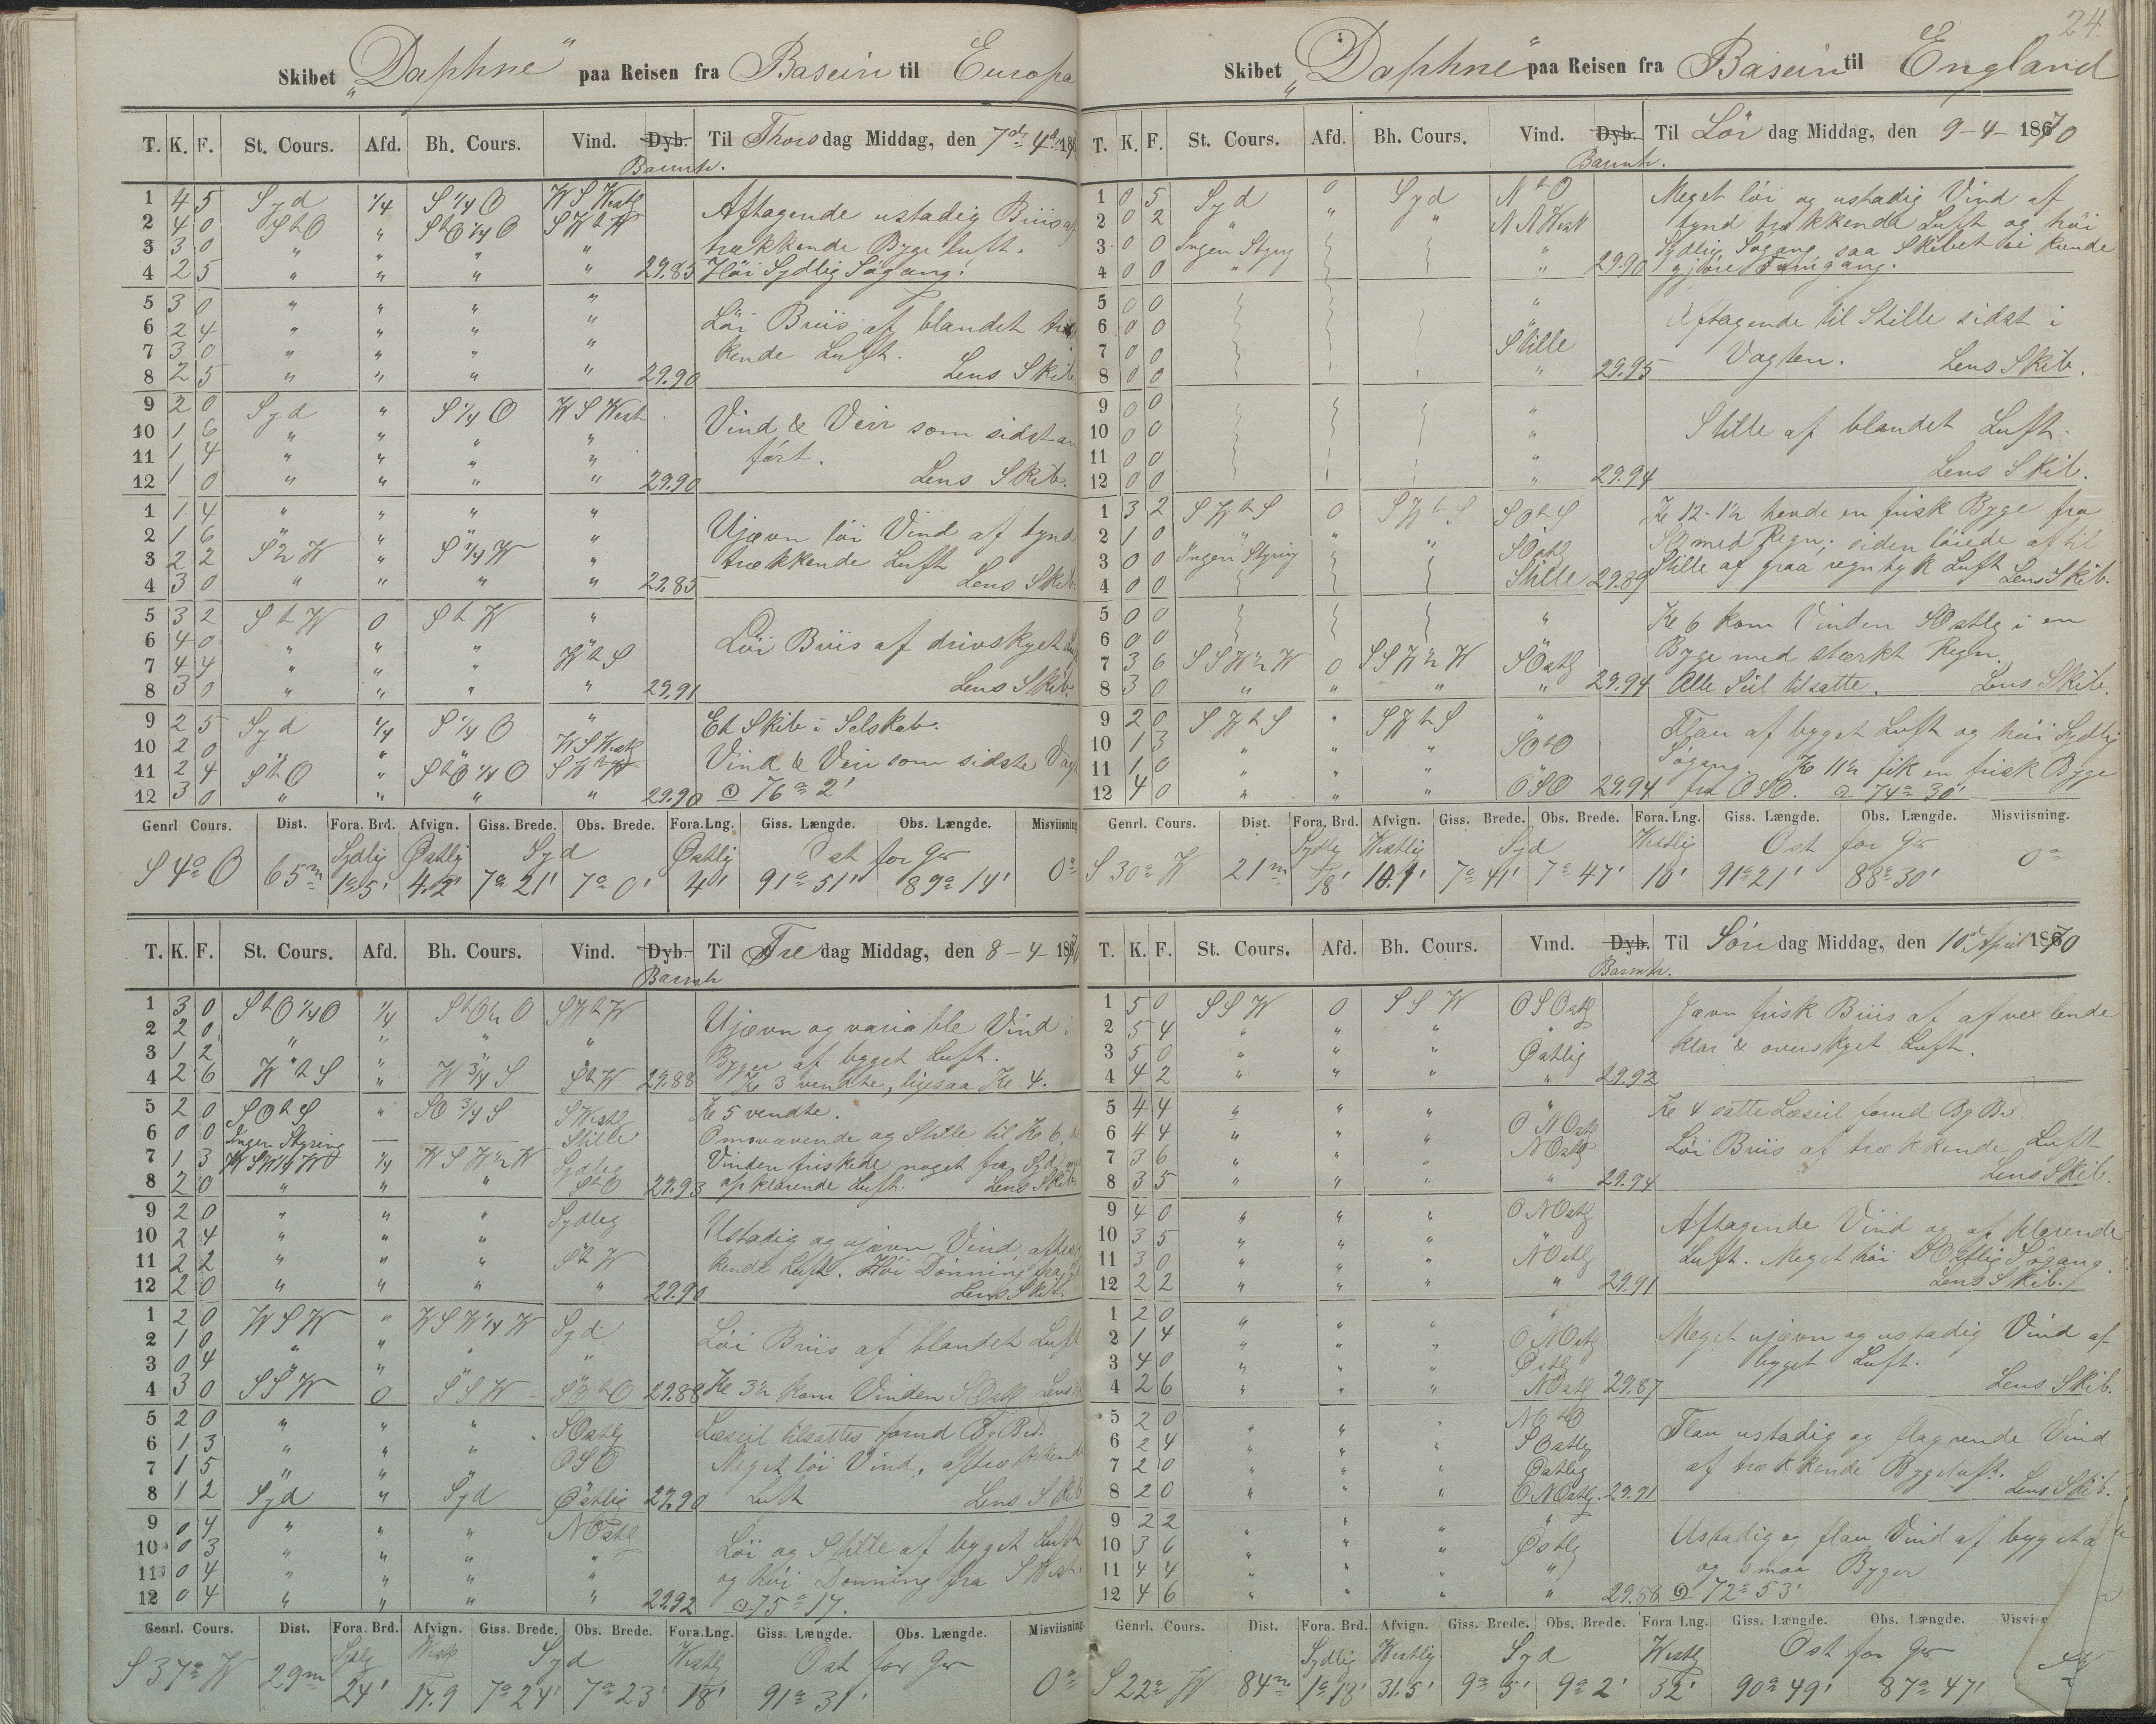 Skibet „Daphne" paa Reisen fra Basein til Europa
T. K. F. St. Cours. Afd. Bh. Cours. Vind. Dyb. Til Thorsdag Middag, den 7de 4de 187
Barmtr.
1 4 5 Syd 1/4 S 1/4 O W S Westlig Aftagende ustadig Briis af
2 4 0 S t O " S t O 1/4 O S W t W trækkende Byge luft.
3 3 0 " " " "
4 2 5 " " " " 29.85 Høi Sydlig Søgang.
5 3 0 " " " "
6 2 4 " " " " Løi Briis af blandet træk
7 3 0 " " " " kende Luft.
8 2 5 " " " " 29.90 Lens Skib
9 2 0 Syd " S 1/4 O W S West
10 1 6 " " " " Vind & Veir som sidst an
11 1 4 " " " " ført.
12 1 0 " " " " 29.90 Lens Skib.
1 1 4 " " " "
2 1 6 " " " " Ujævn løi Vind af tynd
3 2 2 S 1/2 W " S 1/4 W " trækkende Luft
4 3 0 " " " " 29.85 Lens Skib
5 3 2 S t W 0 S t W "
6 4 0 " " " " Løi Briis af drivskyet
7 4 4 " " " W t S
8 3 0 " " " " 29.91 Lens Skib.
9 2 5 Syd 1/4 S 1/4 O " Et Skib i Selskab.
10 2 0 " " " W S Westlig Vind & Veir som sidste Vagt
11 2 4 S t O " S t O 1/4 O S W t W
12 3 0 " " " " 29.90 ☉ 76° 2'
Genrl Cours. Dist. Fora. Brd. Afvign. Giss. Brede. Obs. Brede. Fora. Lng. Giss. Længde. Obs. Længde. Misviisning
Sydlig Østlig Syd Østlig Ost for Gr
S 4° O 65m 1° 5' 4.2' 7° 21' 7° 0' 4' 91° 51' 89° 14' 0°
T. K. F. St. Cours. Afd. Bh. Cours. Vind. Dyb. Til Fredag Middag, den 8 - 4 - 1870
Barmtr
1 3 0 S t O 1/4 O 1/4 S t O 1/2 O S W t W
2 2 0 " " " " Ujævn og variable Vind i
3 1 2 " " " " Byger af byget Luft.
4 2 6 W t S " W 3/4 S S t W 29.88 Kl 3 vendte, ligesaa Kl 4.
5 2 0 S O t S " S O 3/4 S S Westlig Kl 5 vendte.
6 0 0 Ingen Styring — — Stille Omvavende og Stille til Kl 6,
7 1 3 W S W 1/4 W 1/4 W S W 1/2 W Sydlig Vinden friskede noget fra Syd
8 2 0 " " " S t O 29.93 opklarende Luft. Lens Skib
9 2 0 " " " Sydlig
10 2 4 " " " " Ustadig og ujævn Vind af træk
11 2 2 " " " S t W kende Luft. Høi Dønning fra
12 2 0 " " " " 29.90 Lens Skib.
1 2 0 W S W " W S W 1/4 W Syd
2 1 0 " " " Løi Briis af blandet Luft
3 0 4 " " " "
4 3 0 S S W 0 S S W S O t O 29.88 Kl 3 1/2 kom Vinden S Ostlig Lens
5 2 0 " " " S Ostlig Læseil tilsattes forud Bg Bd.
6 1 3 " " " O S O Meget løi Vind, af trækkende
7 1 5 " " "
8 1 2 Syd " Syd Østlig 29.90 Luft Lens Skib
9 0 4 " " " N Ostlig
10 0 3 " " " " Løi og Stille af byget Luft
11 0 4 " " " " og høi Dønning fra S West.
12 0 4 " " " " 29.92 ☉ 75° 17.
Genrl. Cours. Dist. Fora. Brd. Afvign. Giss. Brede. Obs. Brede. Fora. Lng. Giss. Længde. Obs. Længde. Misviisning
Sydlig Westlig Syd Westlig Ost for Gr
S 37° W 29m 24' 17.9 7° 24' 7° 23' 18' 91° 31' 0°
24.
Skibet „Daphne" paa Reisen fra Basein til England
T. K. F. St. Cours. Afd. Bh. Cours. Vind. Dyb. Til Lördag Middag, den 9-4- 1870
Barmtr.
1 0 5 Syd 0 Syd N t O Meget løi og ustadig Vind af
2 0 2 " " " N N West tynd trækkende Luft og høi
3 0 0 Ingen Styrg " Sydlig Søgang saa Skibet ei kunde
4 0 0 " " 29.90 gjøre Fremgang.
5 0 0 "
6 0 0 " Aftagende til Stille sidst i
7 0 0 Stille Vagten.
8 0 0 " 29.95 Lens Skib.
9 0 0 "
10 0 0 " Stille af blandet Luft.
11 0 0 "
12 0 0 " 29.94 Lens Skib.
1 3 2 S W t S 0 S W t S S O t S Kl 12-1 1/2 havde en frisk Byge fra
2 1 0 " " " S Ostlig SO med Regn; siden løiede af til
3 0 0 Ingen Styring Stille af graa regntyk Luft
4 0 0 Stille 29.89 Lens Skib.
5 0 0 " Kl 6 kom Vinden S Ostlig i en
6 0 0 Byge med stærkt Regn.
7 3 6 S S W 1/2 W 0 S S W 1/2 W S Ostlig
8 3 0 " " " " 29.94 Alle Seil tilsatte. Lens Skib.
9 2 0 S W t S " S W t S " Flau af byget Luft og høi Sydlig
10 1 3 " " " S O t O Søgang. Kl 11 1/2 fik en frisk Byge
11 1 0 " " "
12 4 0 " " " O S O 29.94 fra OSO. ☉ 74° 30'
Genrl. Cours. Dist. Fora. Brd. Afvign. Giss. Brede. Obs. Brede. Fora. Lng. Giss. Længde. Obs. Længde. Misviisning.
Sydlig Westlig Syd Westlig Ost for Gr
S 30° W 21m 18' 10.1' 7° 41' 7° 47' 10' 91° 21' 88° 30' 0°
T. K. F. St. Cours. Afd. Bh. Cours. Vind. Dyb. Til Söndag Middag, den 10de April 1870
Barmtr.
1 5 0 S S W 0 S S W O S Ostlig Jævn frisk Briis af afvexlende
2 5 4 " " " " klar & overskyet Luft.
3 5 0 " " " Østlig
4 4 2 " " " " 29.92
5 4 4 " " " " Kl 4 satte Læseil forud Bg Bd
6 4 4 " " " O N Ostlig Løi Briis af trækkende Luft
7 3 6 " " " N Ostlig
8 3 5 " " " " 29.94 Lens Skib.
9 4 0 " " " O N Ostlig
10 3 5 " " " Aftagende Vind og af klarende
11 3 0 " " " N Ostlig Luft. Meget høi S Ostlig Søgang.
12 2 2 " " " " 29.91 Lens Skib.
1 2 0 " " " "
2 1 4 " " " O N Ostlig Meget ujævn og ustadig Vind af
3 4 0 " " " Østlig byget Luft.
4 2 6 " " " N Ostlig 29.87 Lens Skib.
5 2 0 " " " N O t O
6 2 4 " " " S Ostlig Flau ustadig og flagrende Vind
7 2 0 " " " Østlig af trækkende Bygeluft.
8 2 0 " " " O N Ostlig. 29.91 Lens Skib.
9 2 2 " " " "
10 3 6 " " " Østlig Ustadig og flau Vind af byget
11 4 4 " " " " og smaa Byger
12 4 6 " " " " 29.88 ☉ 72° 53'
Genrl. Cours. Dist. Fora. Brd. Afvign. Giss. Brede. Obs. Brede. Fora Lng. Giss. Længde. Obs. Længde.
Sydlig Westlig Syd Westlig Ost for Gr
S 22° W 84m 1° 18' 31.5' 9° 5' 9° 2' 32' 90° 49' 87° 47'